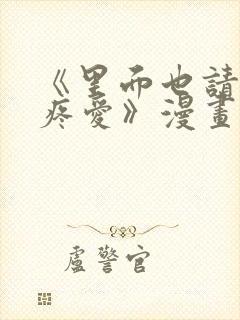 《里面也請
疼愛》漫畫
盧警官